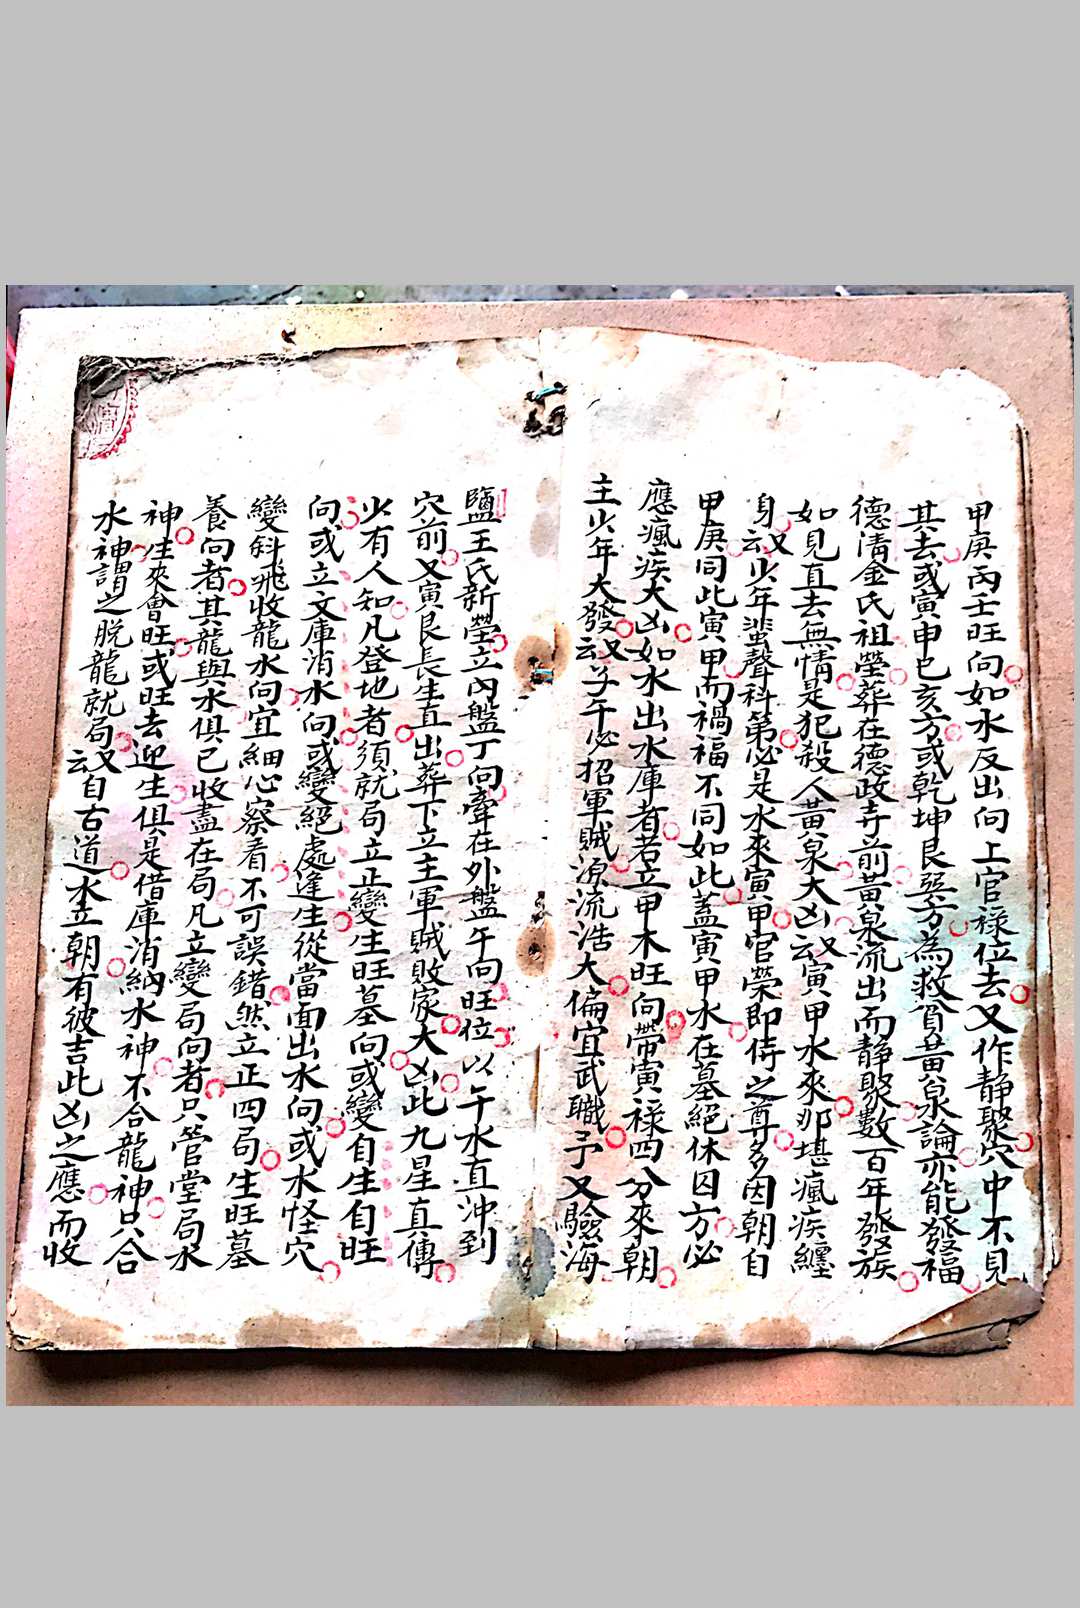 甲庚丙壬旺向如水反出向上官祿位去又作靜聚穴中不見
其去或寅申巳亥方或乾坤艮巽方為救貧黃泉論亦能發福
德清金氏祖塋葬在德政寺前黃泉流出而靜聚數百年發族
如見直去無情是犯殺人黃泉大凶又云寅甲水來那堪瘋疾纏
身又云少年蜚聲科第必是水來寅甲官榮即侍之尊多因朝自
甲庚同此寅甲而禍福不同如此蓋寅甲水在墓絕休囚方必
應瘋疾大凶如水出水庫者若立甲木旺向帶寅祿四分來朝
主少年大發又云子午必招軍賊源流浩大偏宜武職予又驗海
鹽王氏新塋立內盤丁向牽在外盤午向旺位以午水直沖到
穴前又寅艮長生直出葬下立主軍賊敗家大凶此九星真傳
少有人知凡登地者須就局立正變生旺墓向或變自生自旺
向或立文庫消水向或變絕處逢生從當面出水向或水怪穴
變斜飛收龍水向宜細心察看不可誤錯然立正四局生旺墓
養向者其龍與水俱已收盡在局凡立變局向者只管堂局水
神生來會旺或旺去迎生俱是借庫消納水神不合龍神只合
水神謂之脫龍就局又云自古道水立朝有彼吉此凶之應而收